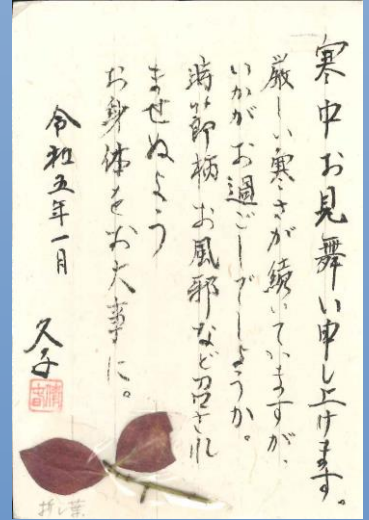 寒中お見舞い申し上げます。
厳しい寒さが続いていますが、
いかがお過ごしでしょうか。
時節柄お風邪など召され
ませぬよう
お身体をお大事に。
令和五年一月
久子
押し葉